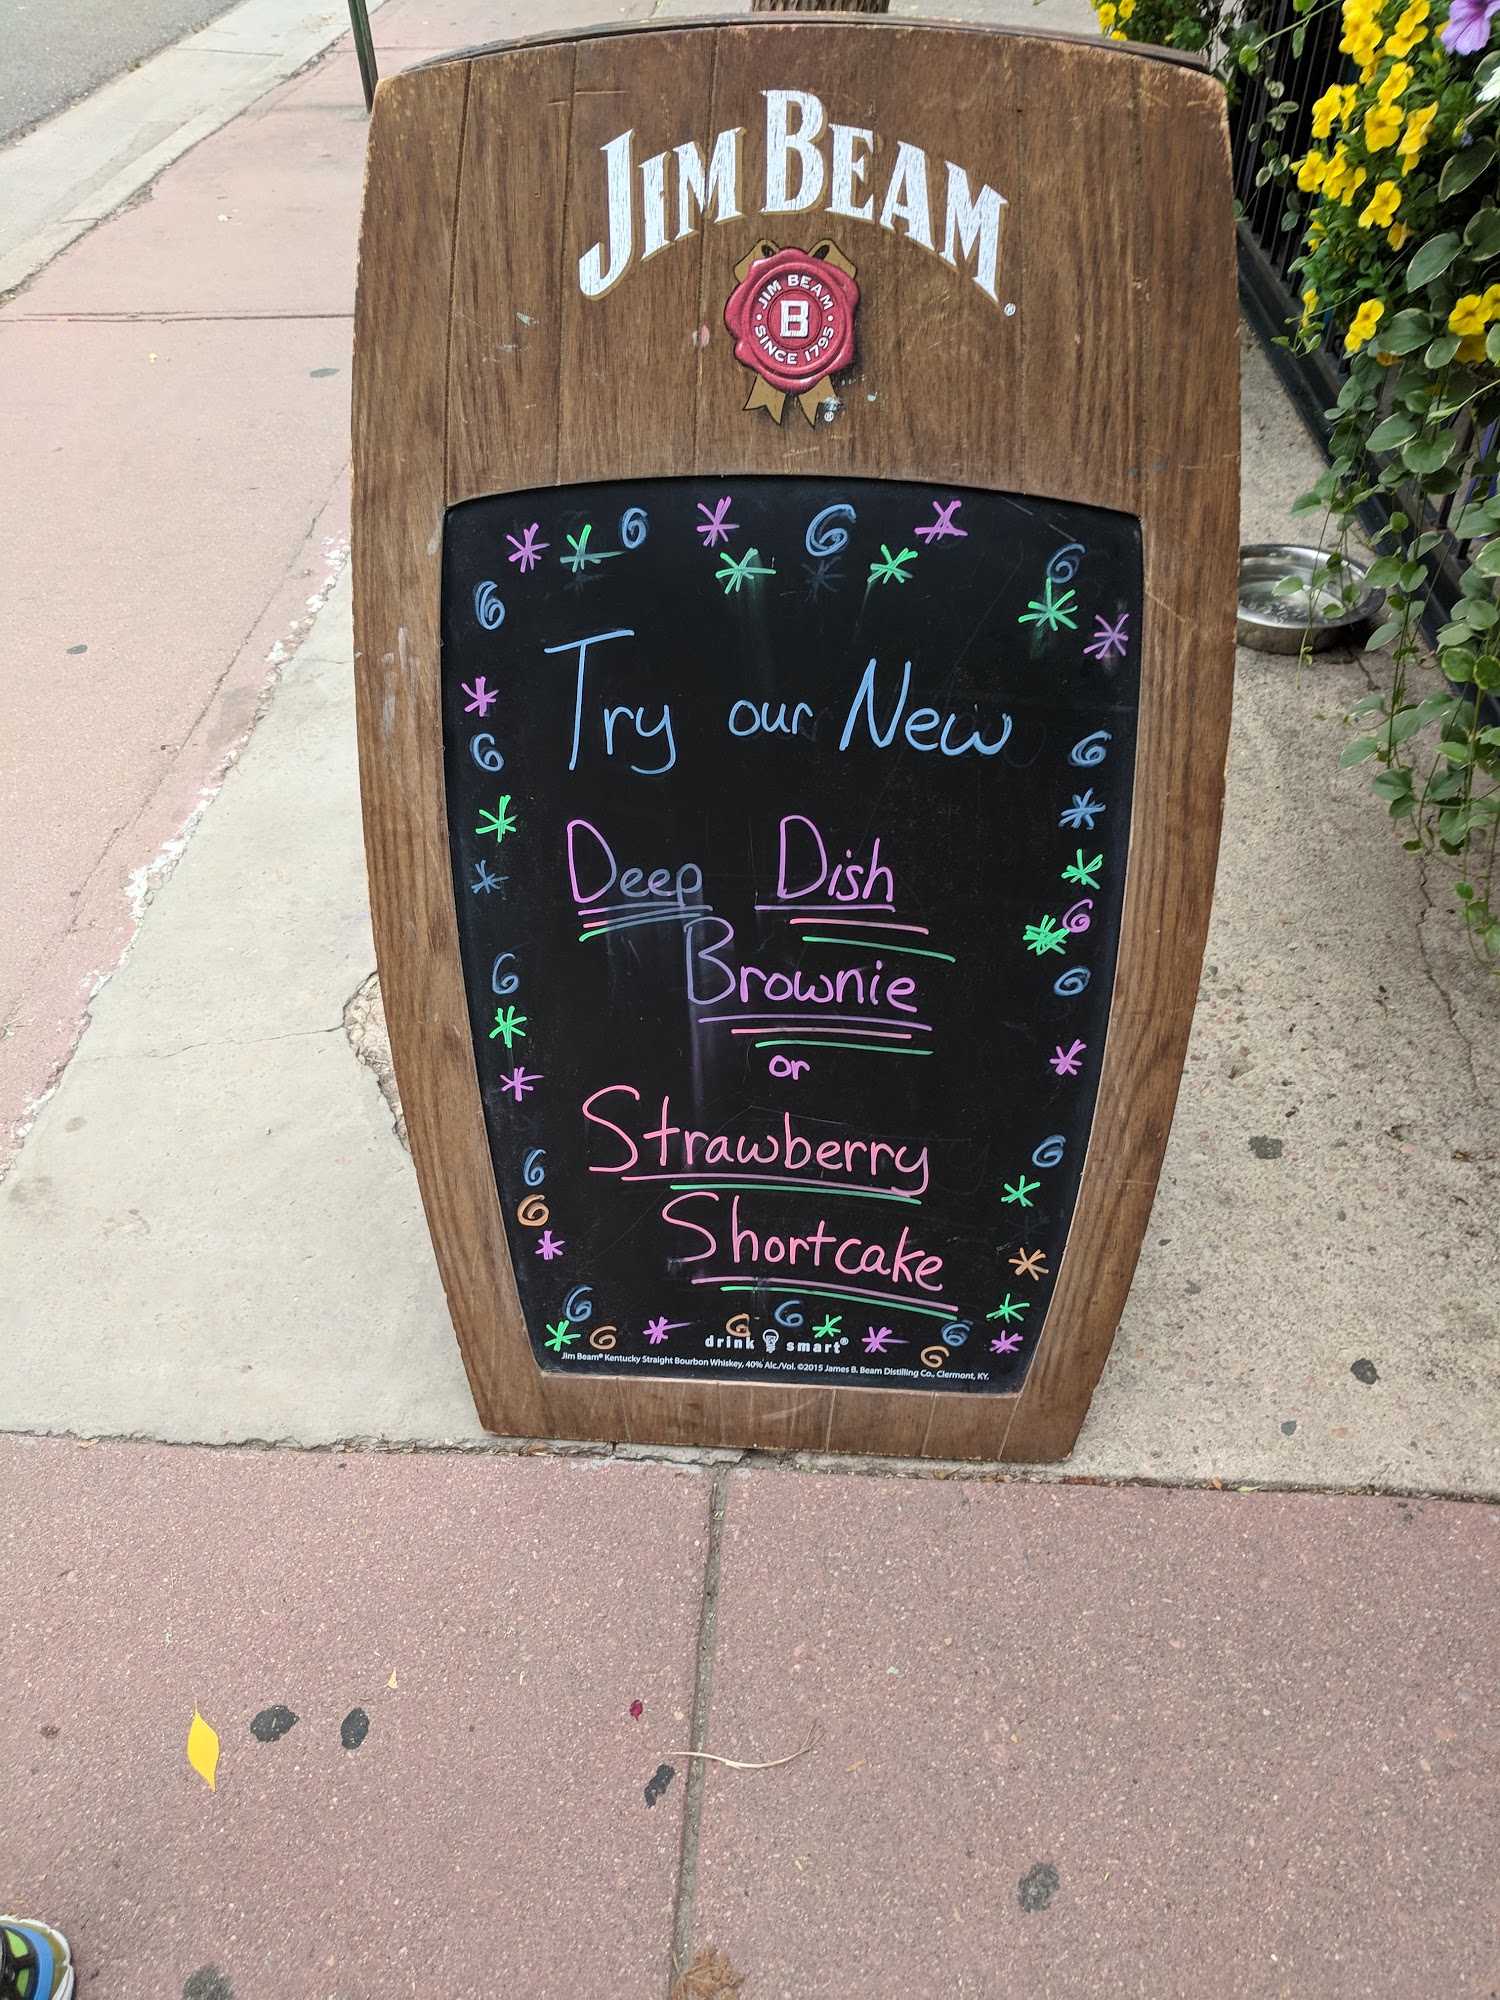 JIM BEAM®
JIM BEAM
B
SINCE 1795
®
Try our New
Deep Dish
Brownie
or
Strawberry
Shortcake
drink smart®
Jim Beam® Kentucky Straight Bourbon Whiskey, 40% Alc./Vol. ©2015 James B. Beam Distilling Co., Clermont, KY.